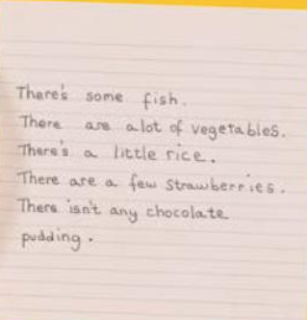 There's some fish.
There are alot of vegetables.
There's a little rice.
There are a few strawberries.
There isn't any chocolate
pudding.